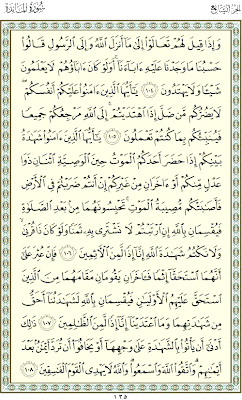 الجزء السابع سورة المائدة
وَإِذَا قِيلَ لَهُمْ تَعَالَوْا۟ إِلَىٰ مَآ أَنزَلَ ٱللَّهُ وَإِلَى ٱلرَّسُولِ قَالُوا۟
حَسْبُنَا مَا وَجَدْنَا عَلَيْهِ ءَابَآءَنَآ ۚ أَوَلَوْ كَانَ ءَابَآؤُهُمْ لَا يَعْلَمُونَ
شَيْـًٔا وَلَا يَهْتَدُونَ ١٠٤ يَـٰٓأَيُّهَا ٱلَّذِينَ ءَامَنُوا۟ عَلَيْكُمْ أَنفُسَكُمْ ۖ
لَا يَضُرُّكُم مَّن ضَلَّ إِذَا ٱهْتَدَيْتُمْ ۚ إِلَى ٱللَّهِ مَرْجِعُكُمْ جَمِيعًا
فَيُنَبِّئُكُم بِمَا كُنتُمْ تَعْمَلُونَ ١٠٥ يَـٰٓأَيُّهَا ٱلَّذِينَ ءَامَنُوا۟ شَهَـٰدَةُ
بَيْنِكُمْ إِذَا حَضَرَ أَحَدَكُمُ ٱلْمَوْتُ حِينَ ٱلْوَصِيَّةِ ٱثْنَانِ ذَوَا
عَدْلٍ مِّنكُمْ أَوْ ءَاخَرَانِ مِنْ غَيْرِكُمْ إِنْ أَنتُمْ ضَرَبْتُمْ فِى ٱلْأَرْضِ
فَأَصَـٰبَتْكُم مُّصِيبَةُ ٱلْمَوْتِ ۚ تَحْبِسُونَهُمَا مِنۢ بَعْدِ ٱلصَّلَوٰةِ
فَيُقْسِمَانِ بِٱللَّهِ إِنِ ٱرْتَبْتُمْ لَا نَشْتَرِى بِهِۦ ثَمَنًا وَلَوْ كَانَ ذَا قُرْبَىٰ ۙ
وَلَا نَكْتُمُ شَهَـٰدَةَ ٱللَّهِ إِنَّآ إِذًا لَّمِنَ ٱلْـَٔاثِمِينَ ١٠٦ فَإِنْ عُثِرَ عَلَىٰٓ
أَنَّهُمَا ٱسْتَحَقَّآ إِثْمًا فَـَٔاخَرَانِ يَقُومَانِ مَقَامَهُمَا مِنَ ٱلَّذِينَ
ٱسْتَحَقَّ عَلَيْهِمُ ٱلْأَوْلَيَـٰنِ فَيُقْسِمَانِ بِٱللَّهِ لَشَهَـٰدَتُنَآ أَحَقُّ
مِن شَهَـٰدَتِهِمَا وَمَا ٱعْتَدَيْنَآ إِنَّآ إِذًا لَّمِنَ ٱلظَّـٰلِمِينَ ١٠٧ ذَٰلِكَ
أَدْنَىٰٓ أَن يَأْتُوا۟ بِٱلشَّهَـٰدَةِ عَلَىٰ وَجْهِهَآ أَوْ يَخَافُوٓا۟ أَن تُرَدَّ أَيْمَـٰنٌۢ بَعْدَ
أَيْمَـٰنِهِمْ ۗ وَٱتَّقُوا۟ ٱللَّهَ وَٱسْمَعُوا۟ ۗ وَٱللَّهُ لَا يَهْدِى ٱلْقَوْمَ ٱلْفَـٰسِقِينَ ١٠٨
١٢٥